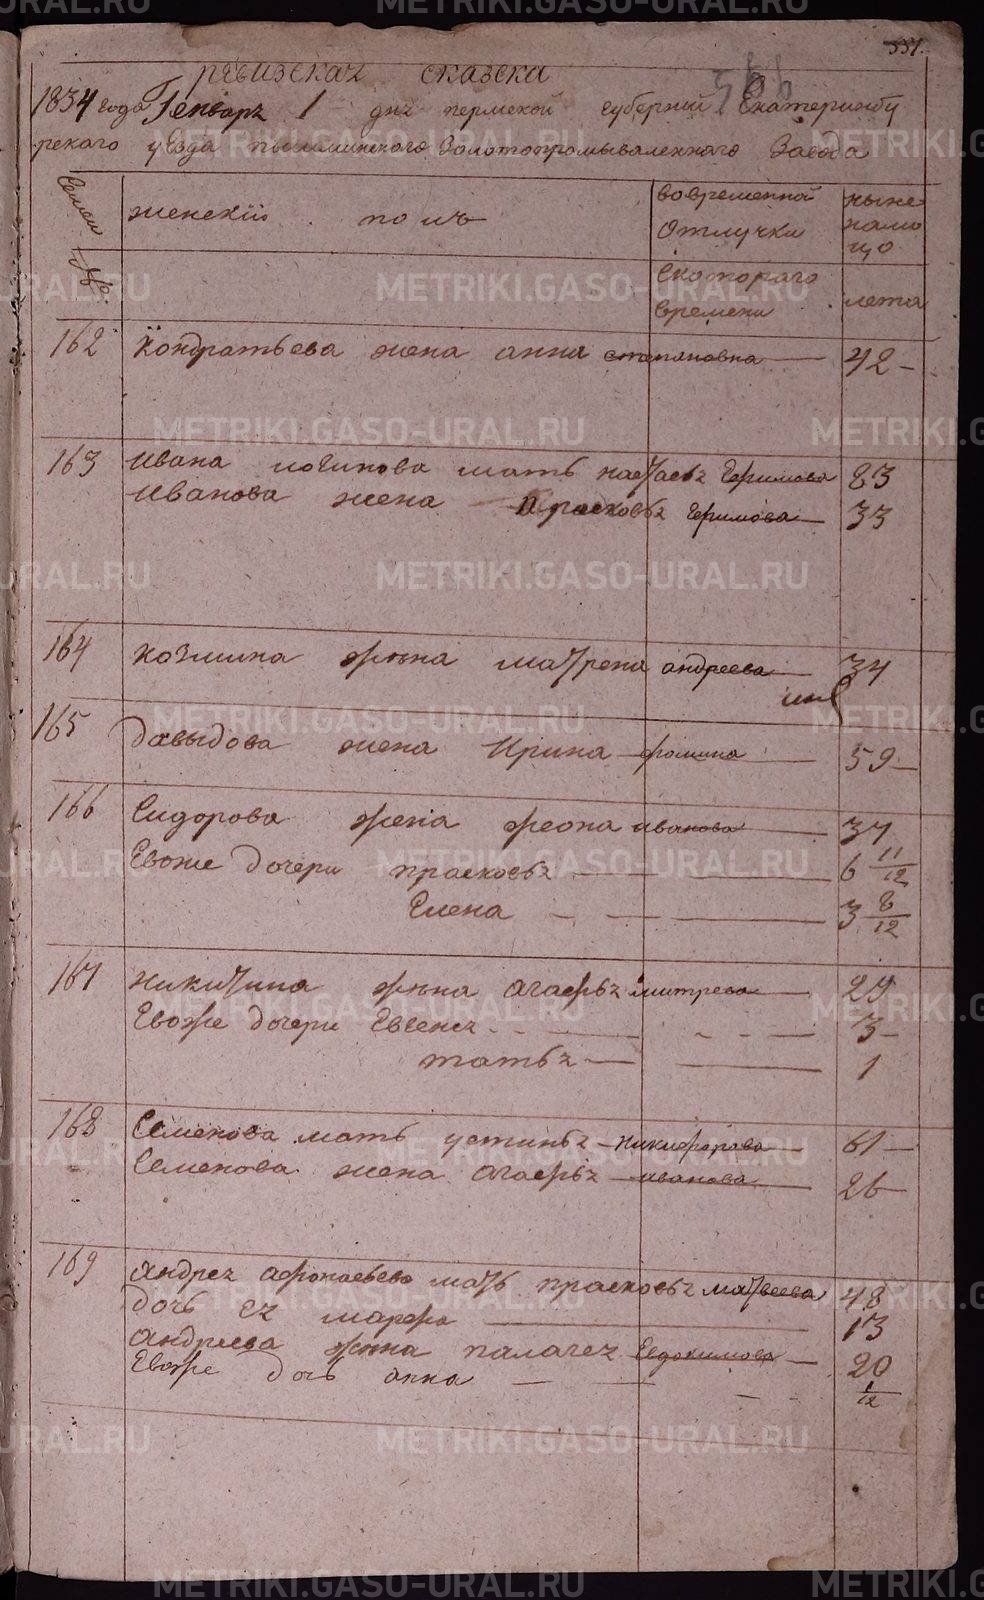 557.
566
ревизская сказска
1834 года Генваря 1 дня пермской губернии Екатеринбу
ргскаго уезда пышминскаго Золотопромываленнаго Завода
Семьи №
женскiй полъ
вовременной Отлучки
ныне налицо
Скотораго времени
лета
162 Кондратьева жена анна степановна 42
163 Ивана логинова мать настасья Ефимова 83
Иванова жена Прасковья Ефимова 33
164 козмина жена матрена андреева 34
165 давыдова жена Ирина фомина 59
166 Сидорова жена феона иванова 37
Евоже дочери прасковья 6 11/12
Елена 3 8/12
167 никитина жена агафья митрева 29
Евоже дочери Евгенея 3
татья 1
168 Семенова мать устинья никифорова 61
Семенова жена агафья иванова 26
169 андрея афонасьева мать прасковья матвеева 48
дочь ея марфа 13
андреева жена палагея Евдокимова 20
Евоже дочь анна 1/12
METRIKI.GASO-URAL.RU